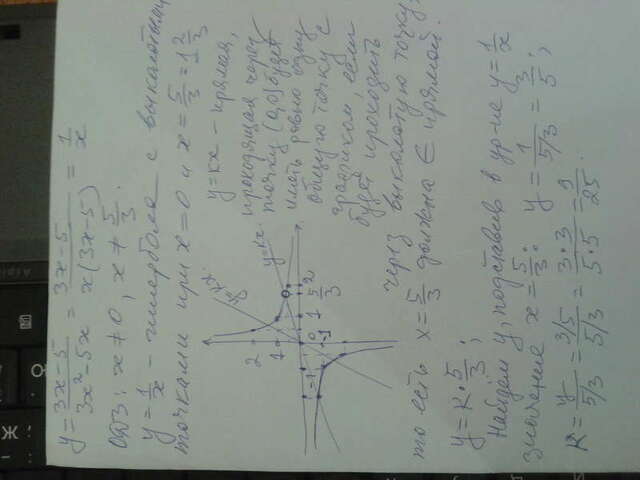 y = \frac{3x-5}{3x²-5x} = \frac{3x-5}{x(3x-5)} = \frac{1}{x}
ОДЗ: x≠0, x≠\frac{5}{3}.
y=\frac{1}{x} - гипербола с выколотыми
точками при x=0 и x=\frac{5}{3}=1\frac{2}{3}
y=kx - прямая,
проходящая через
точку (0,0) будет
иметь равно одну
общую точку с
графиком, если
будет проходить
через выколотую точку,
y=kx
2
1
-1
0
1
\frac{5}{3}
2
-1
то есть x=\frac{5}{3} должна ∈ прямой.
y=k·\frac{5}{3};
Найдём y, подставив в ур-ие y=\frac{1}{x}
значение x=\frac{5}{3}: y=\frac{1}{5/3}=\frac{3}{5};
k=\frac{y}{5/3}=\frac{3/5}{5/3}=\frac{3·3}{5·5}=\frac{9}{25}.
Ж